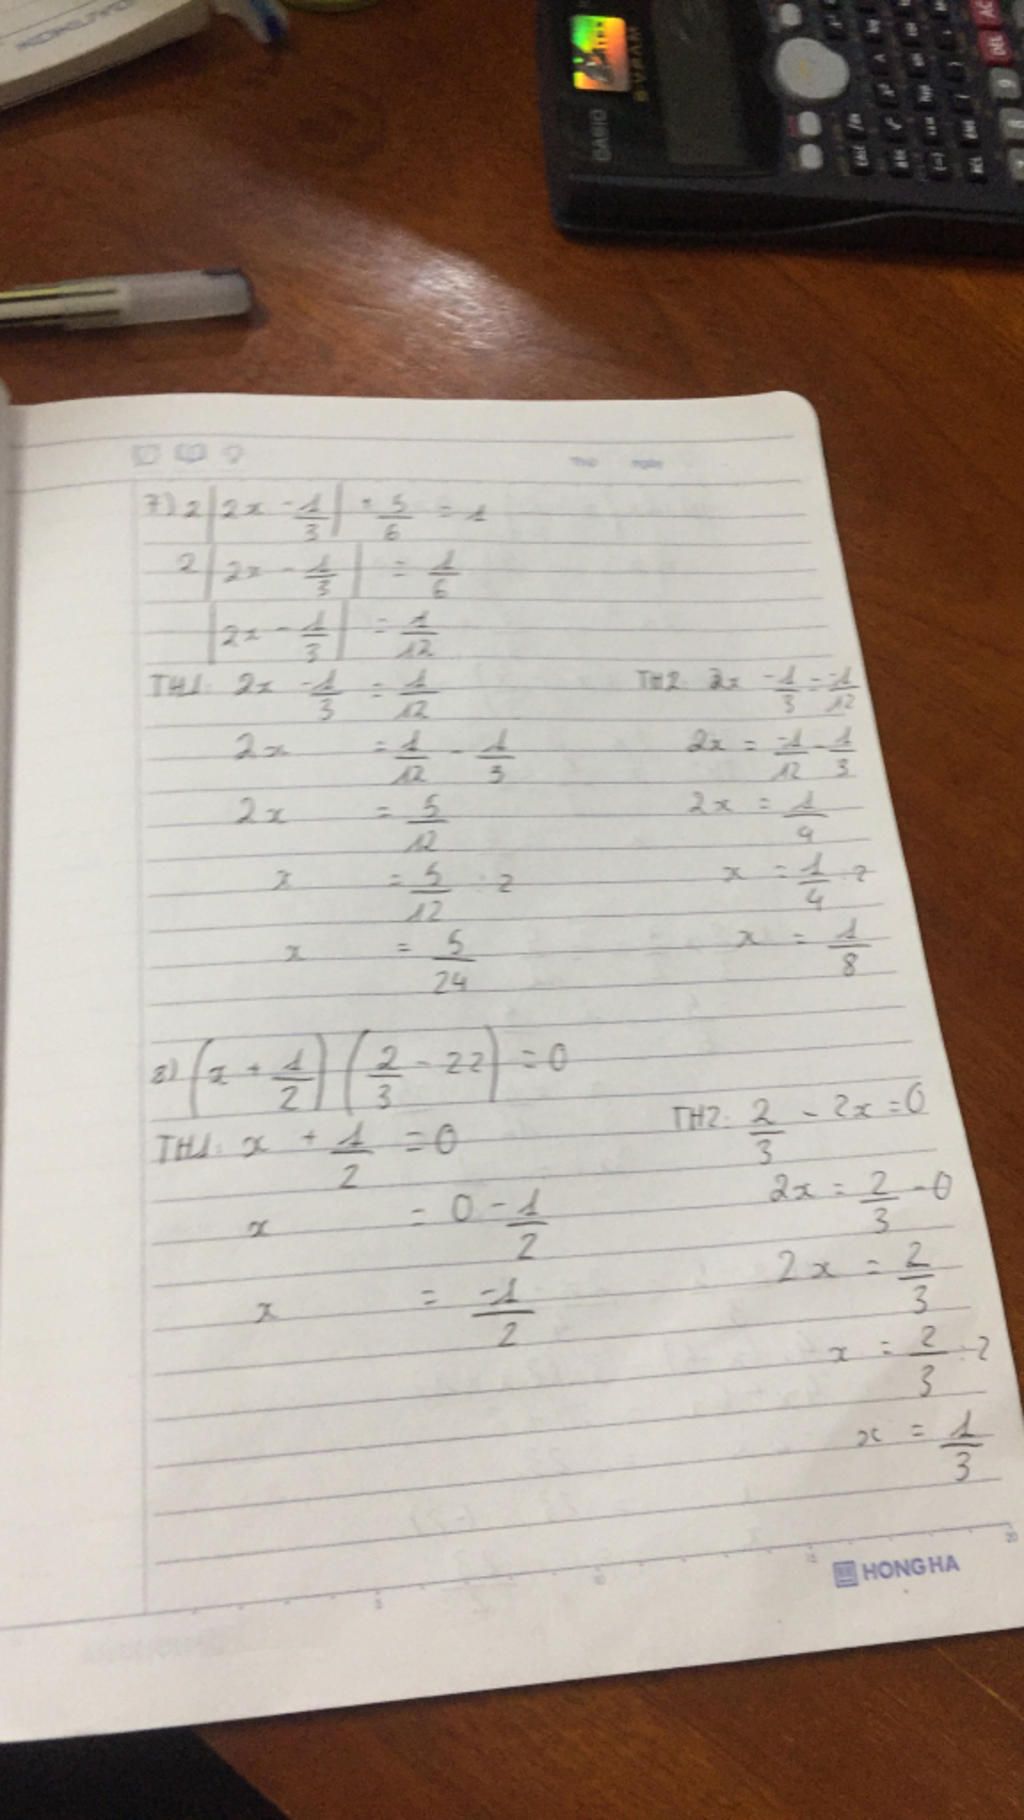 CASIO
7) 2|2x - 1/3| + 5/6 = 1
2|2x - 1/3| = 1/6
|2x - 1/3| = 1/12
TH1: 2x - 1/3 = 1/12
2x = 1/12 - 1/3
2x = 5/12
x = 5/12 : 2
x = 5/24
TH2: 2x - 1/3 = -1/12
2x = -1/12 - 1/3
2x = 1/4
x = 1/4 : 2
x = 1/8
8) (x + 1/2)(2/3 - 2x) = 0
TH1: x + 1/2 = 0
x = 0 - 1/2
x = -1/2
TH2: 2/3 - 2x = 0
2x = 2/3 - 0
2x = 2/3
x = 2/3 : 2
x = 1/3
HONG HA